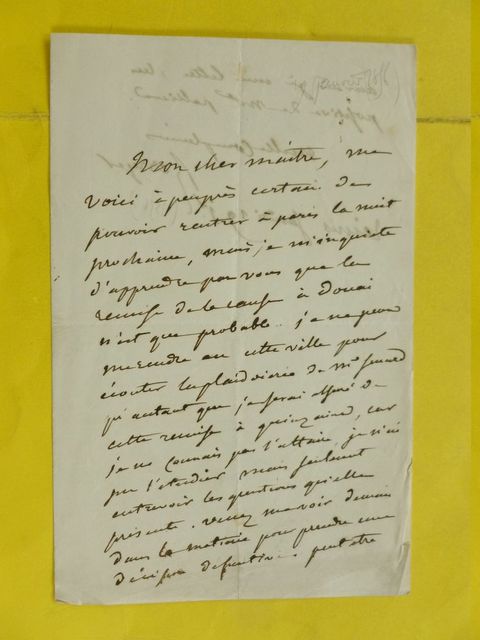 Mon cher maître, me
voici à peuprès certain de
pouvoir rentrer à paris la nuit
prochaine, mais je m'inquiete
d'apprendre par vous que la
remise de la cause à Douai
n'est que probable.. je ne peux
me rendre en cette ville pour
écouter la plaidoirie de Me
qu'autant que je serai assuré de
cette remise à quinzaine, car
je ne connais pas l'affaire, je n'ai
pu l'etudier mais seulement
entrevoir les questions qu'elle
présente. venez me voir demain
dans la matinée pour prendre une
décision définitive peut être